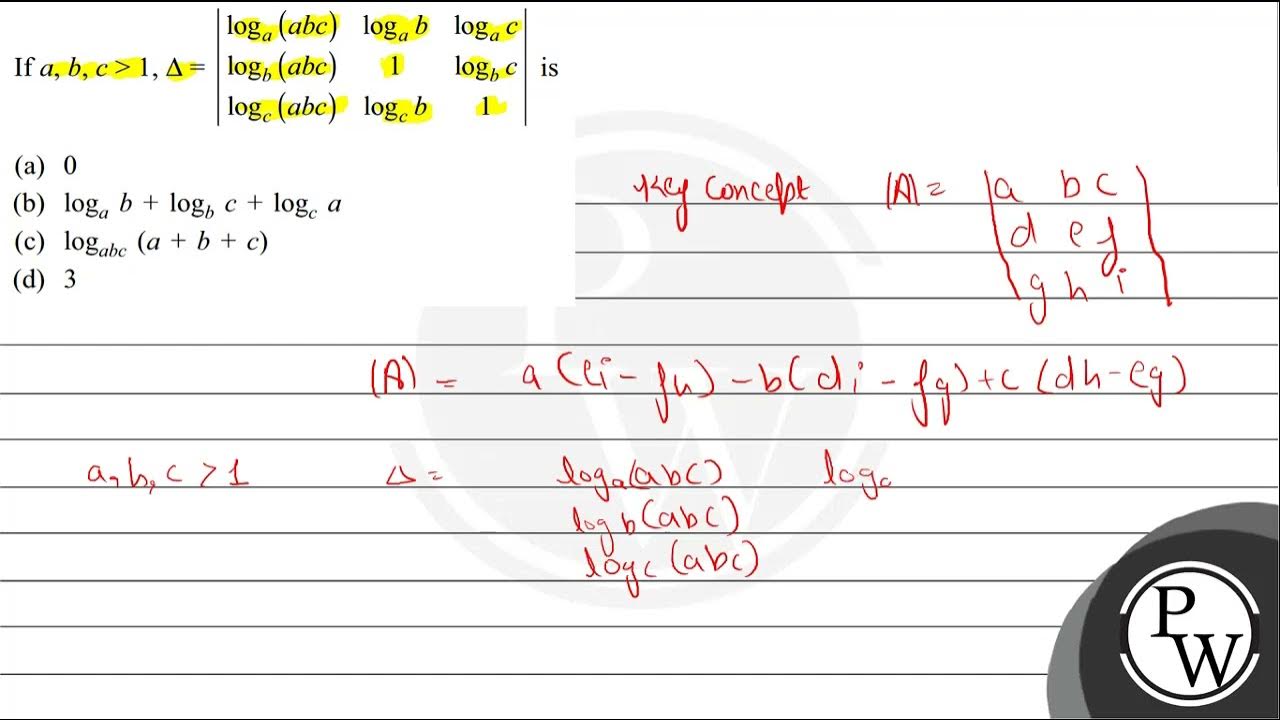 If a, b, c > 1, Δ = | logₐ(abc) logₐ b logₐ c |
| log_b(abc) 1 log_b c | is
| log_c(abc) log_c b 1 |
(a) 0
(b) logₐ b + log_b c + log_c a
(c) log_abc (a + b + c)
(d) 3
Key Concept |A| = | a b c |
| d e f |
| g h i |
|A| = a (ei - fh) - b(di - fg) + c (dh - eg)
a, b, c > 1 Δ = logₐ(abc) logₐ
log_b(abc)
log_c(abc)
PW
PW